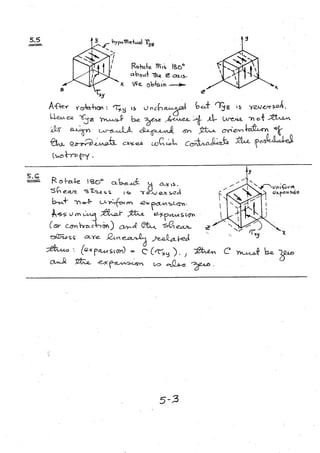 5.5
y hypothetical γyz
y
Rotate this 180°
about the z axis.
We obtain
z x z x
τxy
After rotation: τxy is unchanged but γyz is reversed.
Hence γyz must be zero since if it were not then
its sign would depend on the orientation of
the coordinate axes which contradicts the postulated
isotropy.
5.6
Rotate 180° about y axis.
Shear stress is reversed
but not uniform expansion.
Assuming that the expansion
(or contraction) and the shear
stress are linearly related
thus: (expansion) = C (τxy)., then C must be zero
and the expansion is also zero.
y
uniform
expansion
z τxy x
5-3